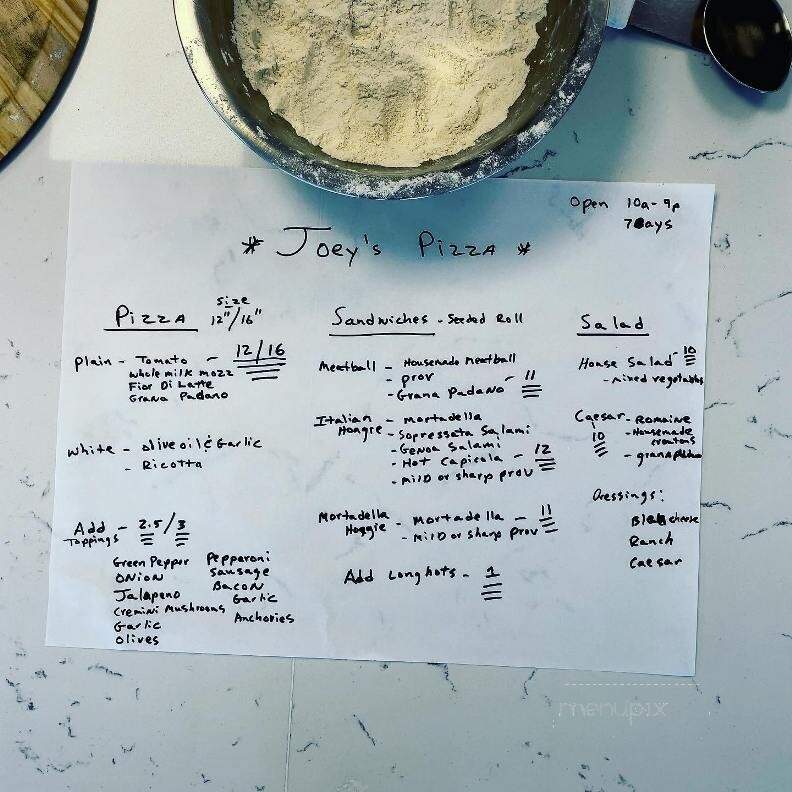 Open 10a-9p
7Days
* Joey's Pizza *
Pizza size 12"/16"
Plain - Tomato - 12/16
whole milk mozz
Fior Di Latte
Grana Padano
White - olive oil & Garlic
- Ricotta
Add Toppings - 2.5/3
Green Pepper
Onion
Jalapeno
Cremini Mushrooms
Garlic
Olives
Pepperoni
Sausage
Bacon
Garlic
Anchovies
Sandwiches - Seeded Roll
Meatball - Housemade meatball
- prov
- Grana Padano - 11
Italian Hoagie - Mortadella
- Sopressata Salami
- Genoa Salami
- Hot Capicola - 12
- mild or sharp prov
Mortadella Hoggie - Mortadella - 11
- mild or sharp prov
Add Longhots - 1
Salad
House Salad - 10
- mixed vegetables
Caesar 10 - Romaine
- Housemade croutons
- grana padano
Dressings:
Bleu cheese
Ranch
Caesar
menupix